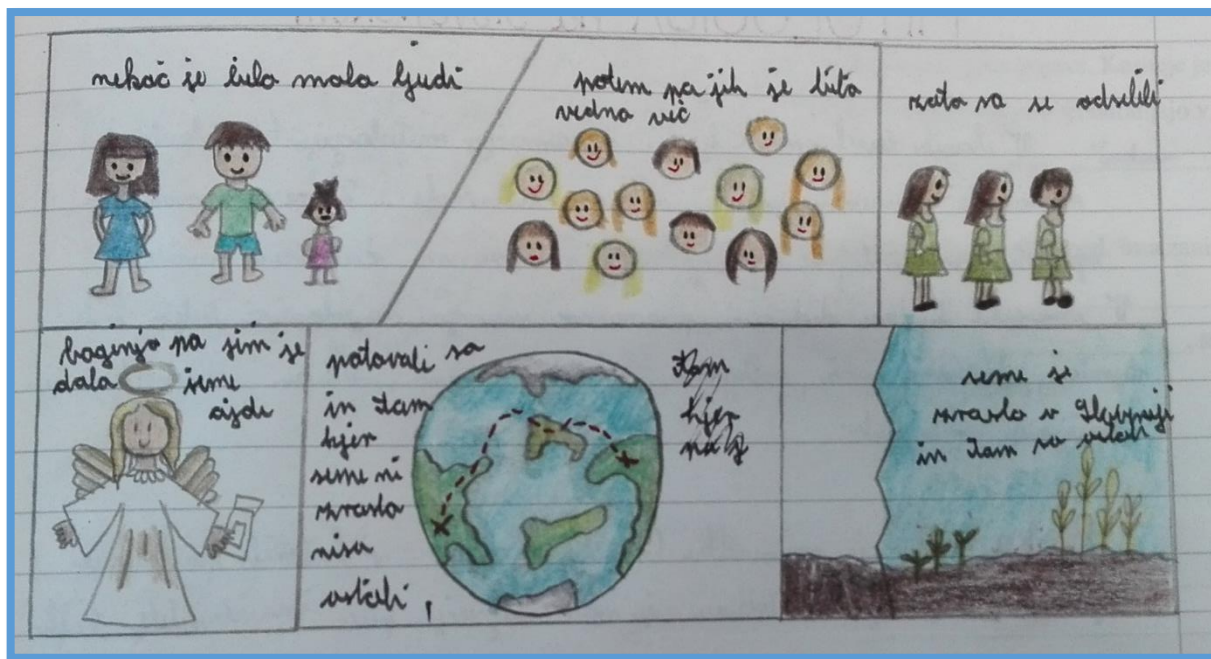 nekoč je bilo malo ljudi
potem pa jih je bilo
vedno več
zato so se odselili
boginja pa jim je
dala seme
ajde
potovali so
in tam
kjer
seme ni
zraslo
niso
ostali,
tam
kjer
seme je
zraslo v Sloveniji
in tam so ostali